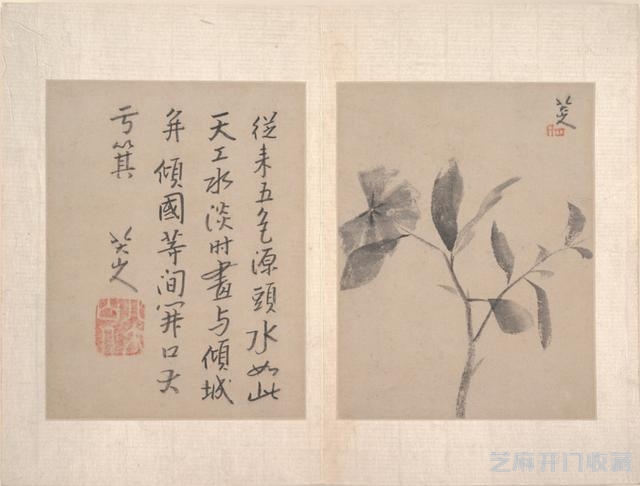 從来五色源頭水如此
天工水淡时畫与傾城
并傾國等间開口大
八大山人
八大山人
芝麻开门收藏